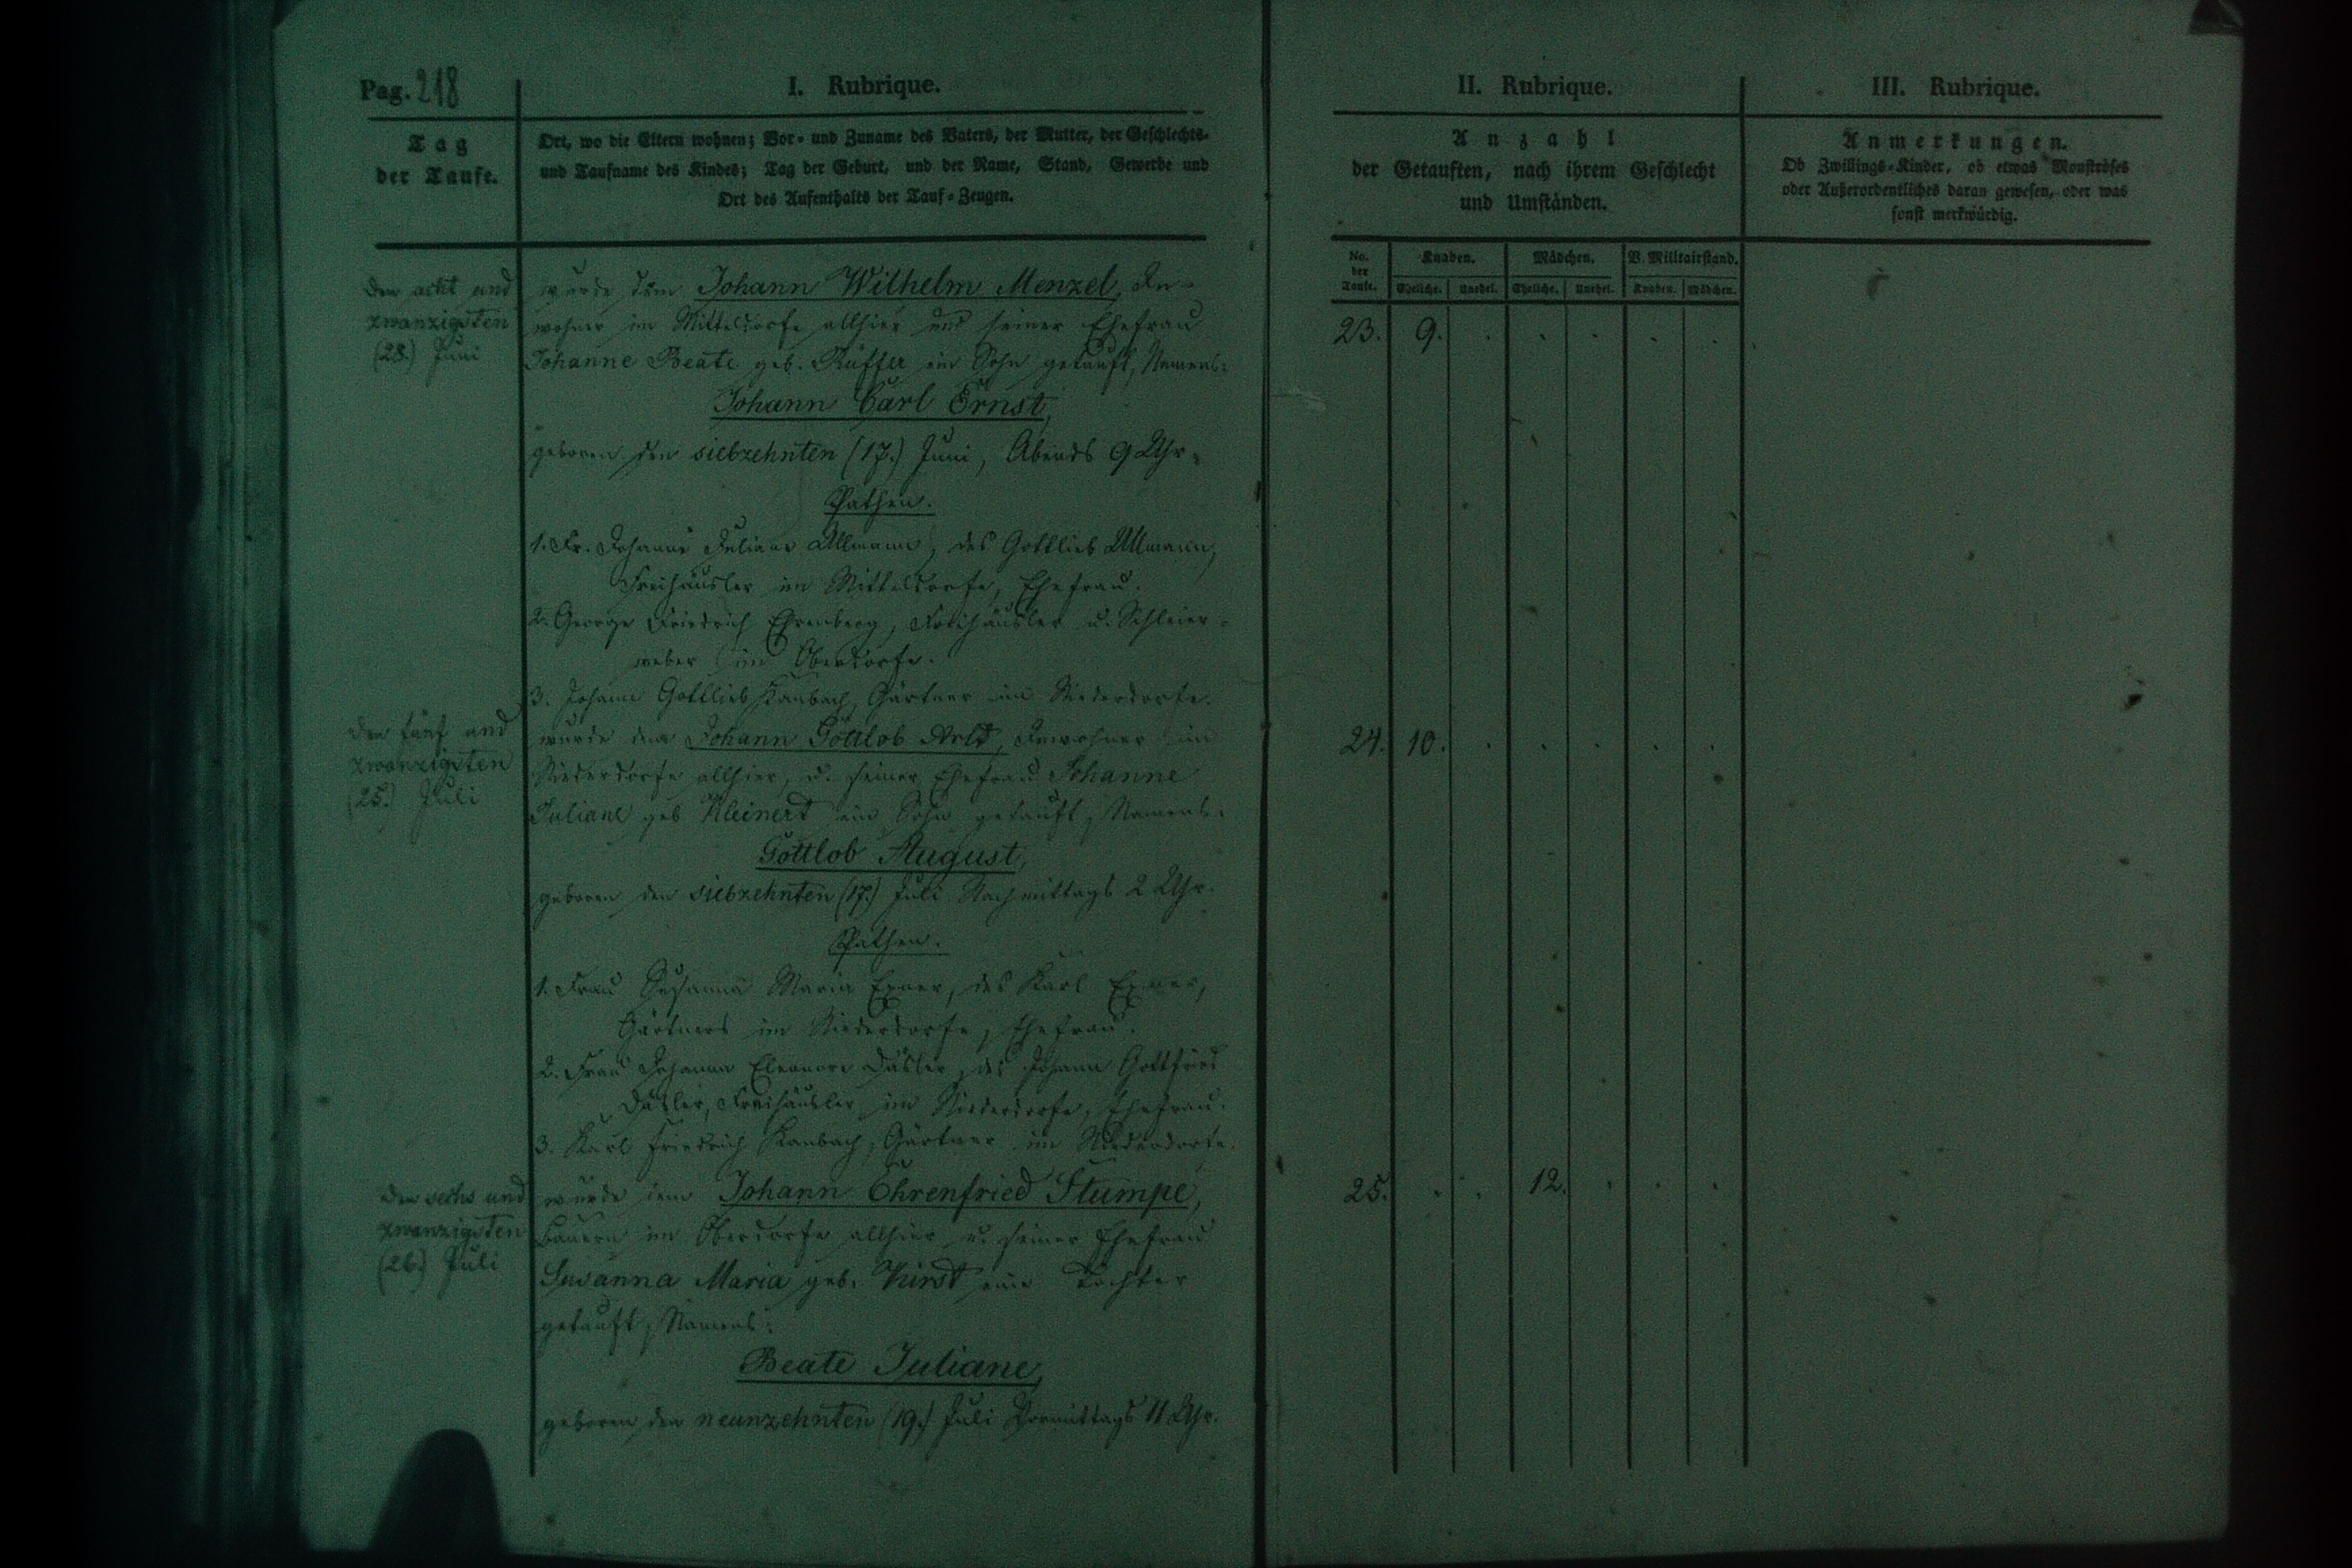 Pag. 218
I. Rubrique.
Tag
der Taufe.
Ort, wo die Eltern wohnen; Vor- und Zuname des Vaters, der Mutter, der Geschlechts-
und Taufname des Kindes; Tag der Geburt, und der Name, Stand, Gewerbe und
Ort des Aufenthalts der Tauf-Zeugen.
den acht und
zwanzigsten
(28.) Juni
wurde dem Johann Wilhelm Menzel, In-
wohner im Mitteldorfe allhier und seiner Ehefrau
Johanne Beate geb. Rüffer ein Sohn getauft, Namens:
Johann Carl Ernst,
geboren den siebzehnten (17.) Juni, Abends 9 Uhr.
Pathen.
1. Fr. Johanne Juliane Ullmann, des Gottlieb Ullmann,
Freihäusler im Mitteldorfe, Ehefrau.
2. George Friedrich Ehrenberg, Freihäusler u. Schleier-
weber im Oberdorfe.
3. Johann Gottlieb Kanbach, Gärtner im Niederdorfe.
den fünf und
zwanzigsten
(25.) Juli
wurde dem Johann Gottlob Arlt, Inwohner im
Niederdorfe allhier, u. seiner Ehefrau Johanne
Juliane geb Kleinert ein Sohn getauft, Namens:
Gottlob August,
geboren den siebzehnten (17.) Juli Nachmittags 2 Uhr.
Pathen.
1. Frau Susanna Maria Exner, des Karl Exner,
Gärtners im Niederdorfe, Ehefrau.
2. Frau Johanne Eleonore Däsler, des Johann Gottfried
Däsler, Freihäusler im Niederdorfe, Ehefrau.
3. Karl Friedrich Kanbach, Gärtner im Niederdorfe.
den sechs und
zwanzigsten
(26.) Juli
wurde dem Johann Ehrenfried Stumpe,
Bauern im Oberdorfe allhier u. seiner Ehefrau
Susanna Maria geb. Kirst eine Tochter
getauft, Namens:
Beate Juliane,
geboren den neunzehnten (19.) Juli Vormittags 11 Uhr.
II. Rubrique.
Anzahl
der Getauften, nach ihrem Geschlecht
und Umständen.
No. der Taufe. Knaben. Mädchen. B. Militairstand.
Eheliche. Unehel. Eheliche. Unehel. Knaben. Mädchen.
23. 9. . . . . .
24. 10. . . . . .
25. . . 12. . . .
III. Rubrique.
Anmerkungen.
Ob Zwillings-Kinder, ob etwas Monströses
oder Außerordentliches daran gewesen, oder was
sonst merkwürdig.